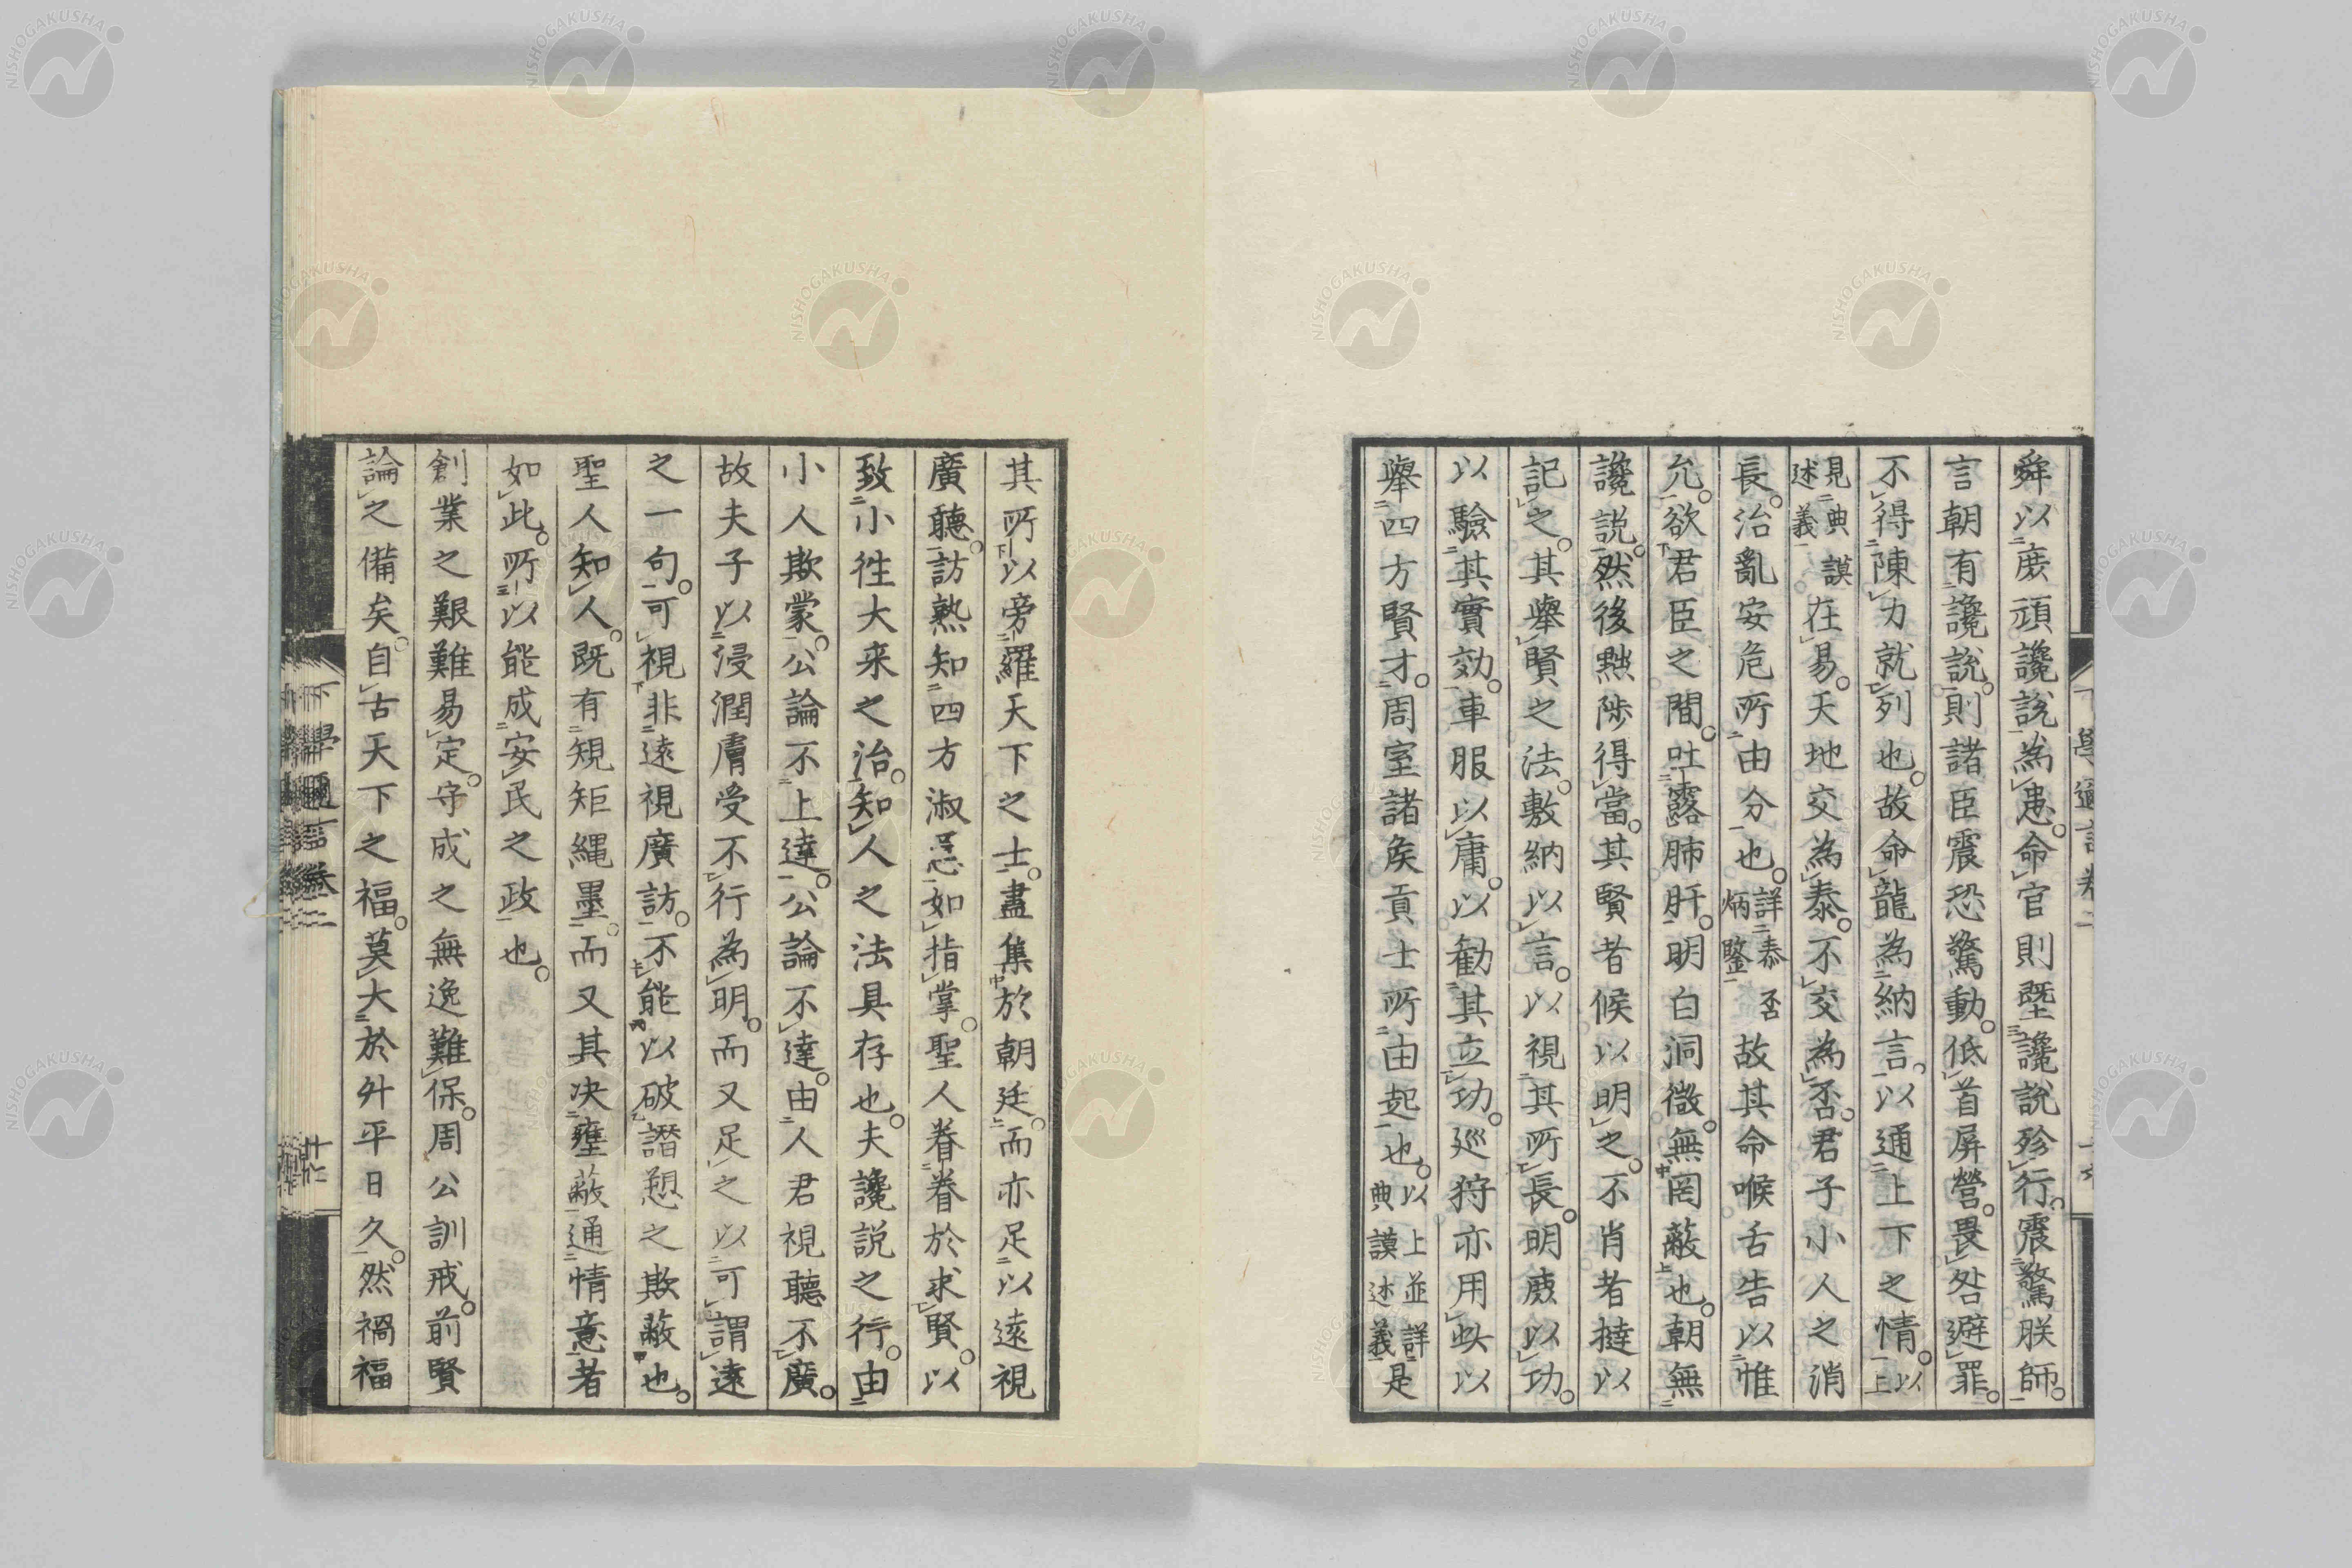 舜以庶頑讒說為患。命官則堲讒說殄行。震驚朕師。
言朝有讒說。則諸臣震恐驚動。低首屏營。畏咎避罪。
不得陳力就列也。故命龍為納言。以通上下之情。以上
見典謨述義在易。天地交為泰。不交為否。君子小人之消
長。治亂安危所由分也。詳泰否炳鑒故其命喉舌告以惟
允。欲君臣之間。吐露肺肝。明白洞徹。無罔蔽也。朝無
讒說。然後黜陟得當。其賢者候以明之。不肖者撻以
記之。其舉賢之法。敷納以言。以視其所長。明庶以功。
以驗其實効。車服以庸。以勸其立功。巡狩亦用此以
舉四方賢才。周室諸矦貢士所由起也。以上並詳典謨述義是
其所以旁羅天下之士。盡集於朝廷。而亦足以遠視
廣聽。訪熟知四方淑慝。如指掌。聖人眷眷於求賢。以
致小徃大来之治。知人之法具存也。夫讒説之行。由
小人欺蒙。公論不上達。公論不達。由人君視聽不廣。
故夫子以浸潤膚受不行為明。而又足之以可謂遠
之一句。可視非遠視廣訪。不能以破譖愬之欺蔽也。
聖人知人。既有規矩縄墨。而又其决壅蔽通情意者
如此。所以能成安民之政也。
創業之艱難易定。守成之無逸難保。周公訓戒。前賢
論之備矣。自古天下之福。莫大於升平日久。然禍福
NISHOGAKUSHA